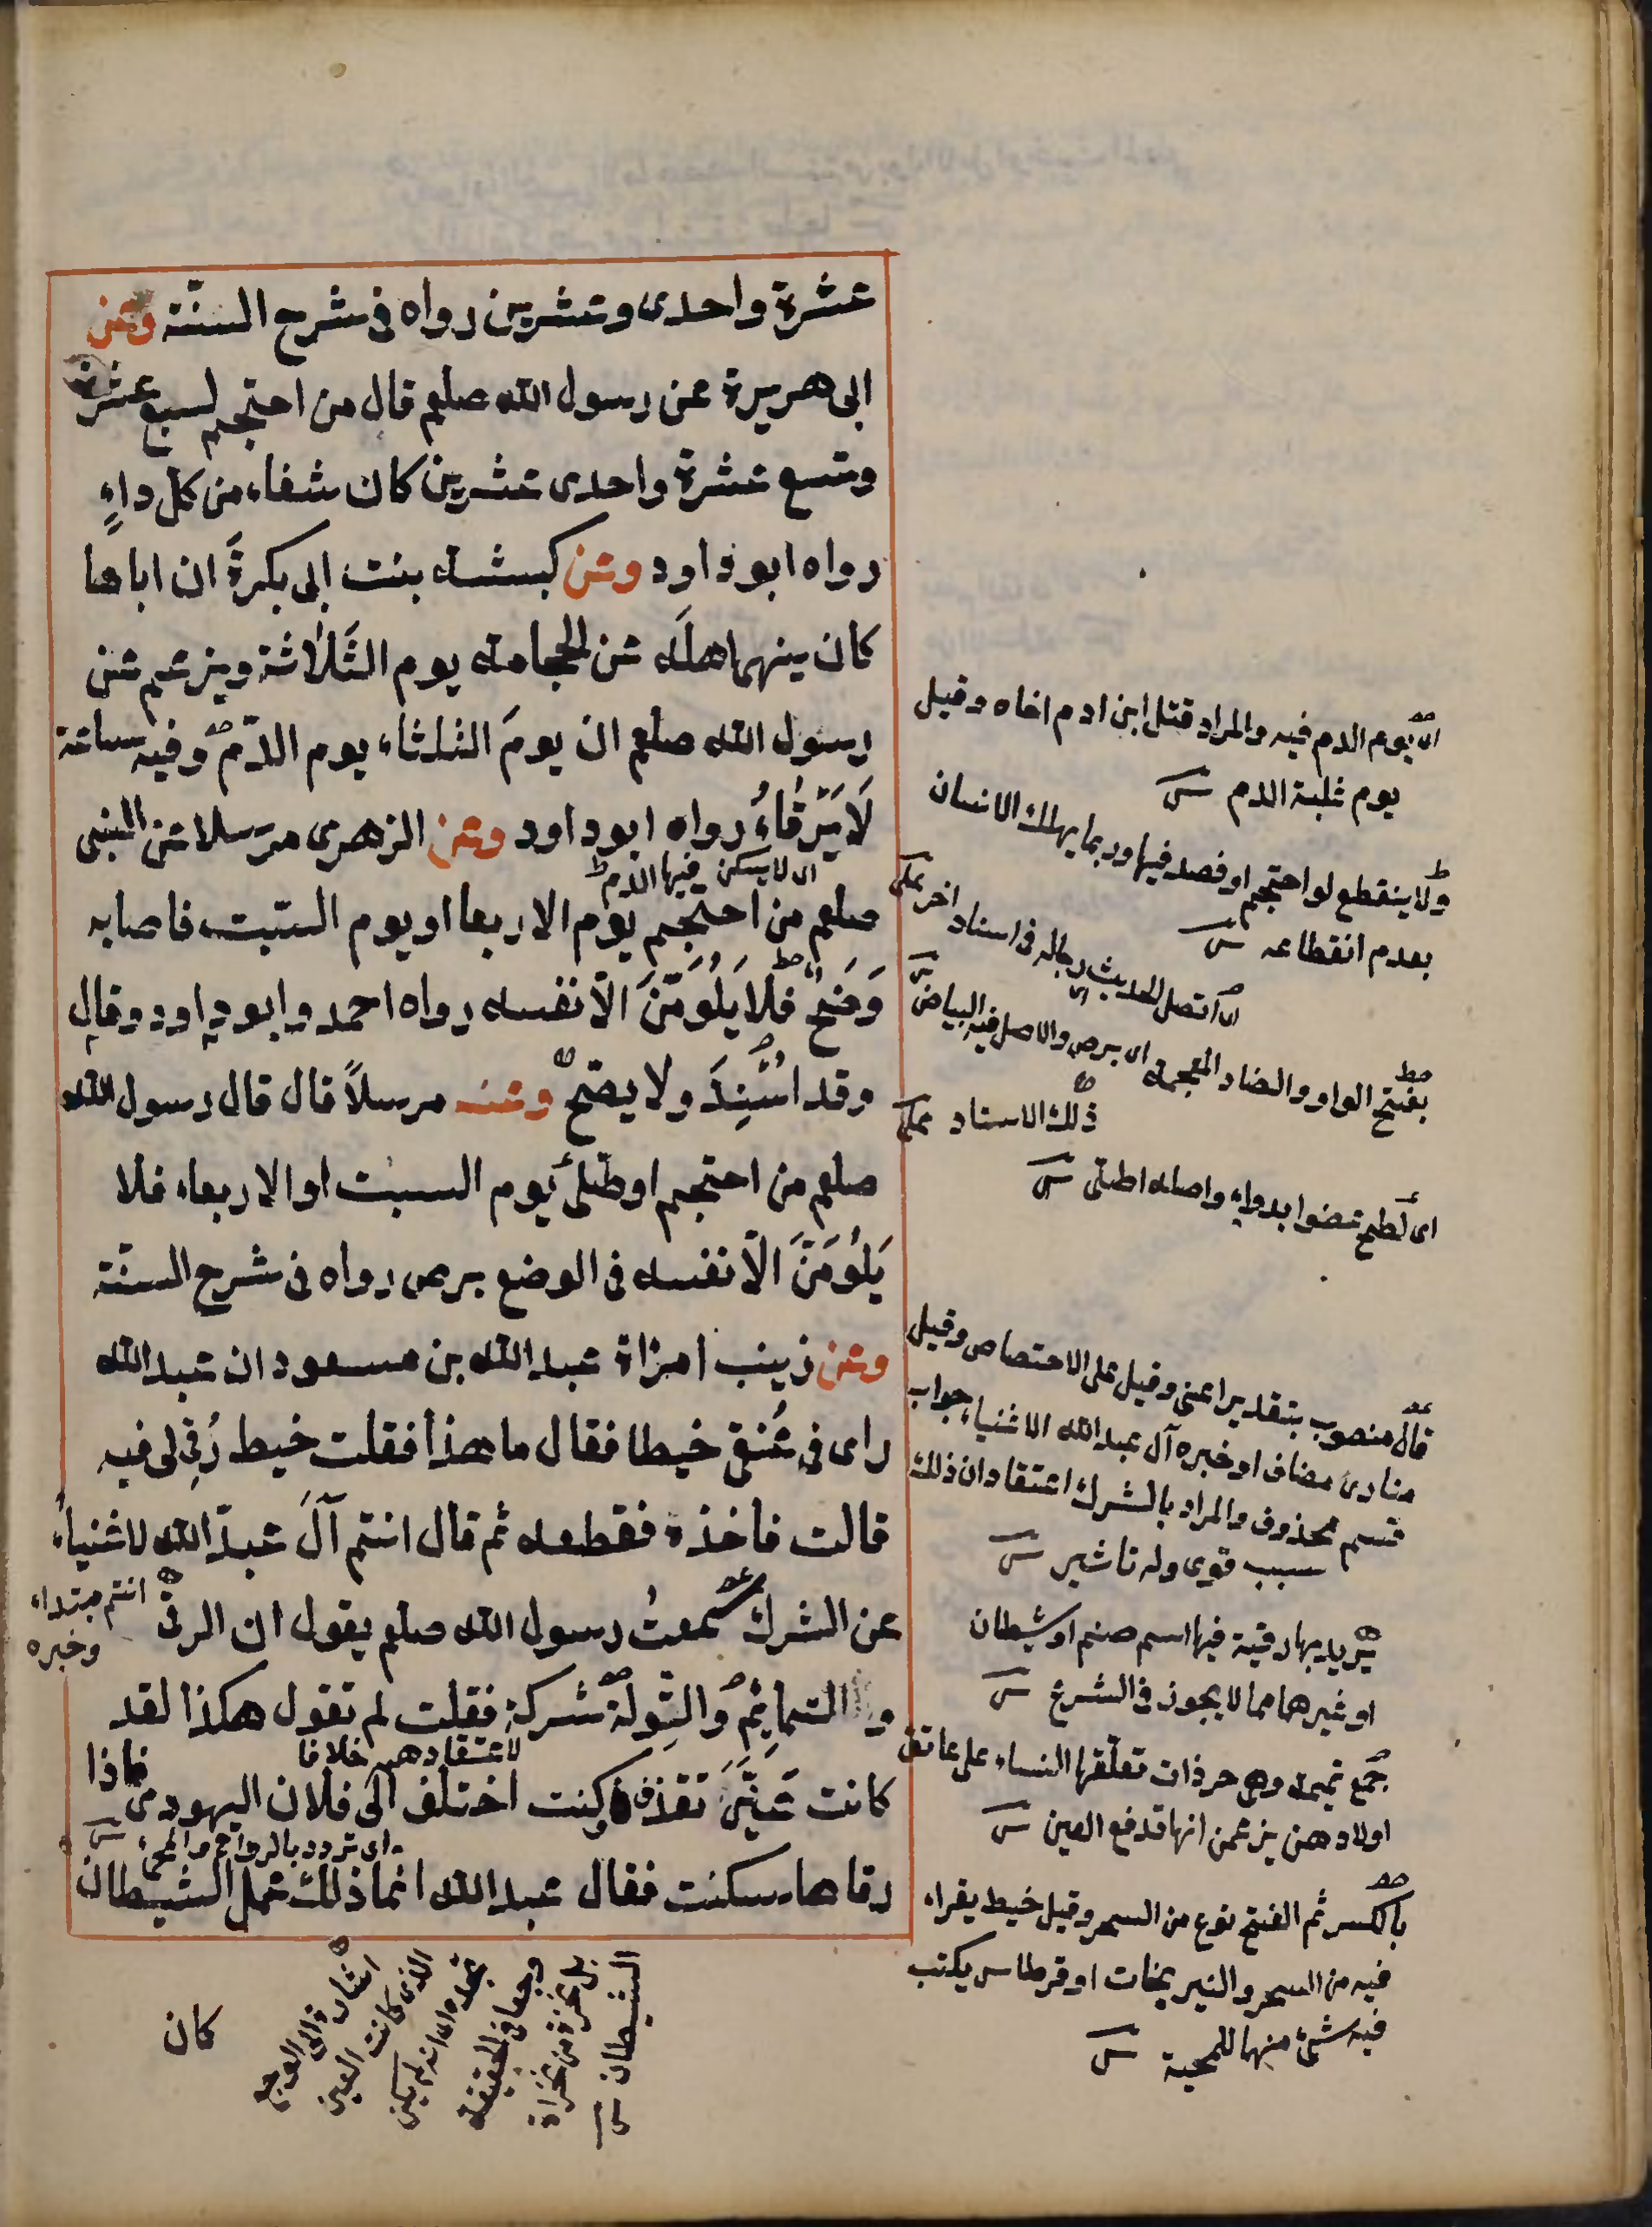 عشرة واحدى وعشرين رواه فى شرح السنّة وعن
ابى هريرة عن رسول الله صلعم قال من احتجم لسبع عشرة
وتسع عشرة واحدى عشرين كان شفاء من كل داءٍ
رواه ابو داود وعن كبشه بنت ابى بكرةَ ان اباها
كان ينهى اهلَه عن الحجامه يوم الثَّلاثة ويزعم عن
رسول الله صلعم ان يومَ الثلثاء يوم الدّم وفيه ساعة
لَا يَرْقَاءُ رواه ابو داود وعن الزهرى مرسلا عن النبى
اى لا يسكن فيها الدم
صلعم من احتجم يوم الاربعا او يوم السّبت فاصابه
وَضَحٌ فلا يَلُومَنَّ الّا نفسه رواه احمد وابو داود وقال
وقد اُسْنِدَ ولا يصحّ وعنه مرسلاً قال قال رسول الله
صلعم من احتجم او طّلى يوم السبت او الاربعاء فلا
يَلُومَنَّ الّا نفسه فى الوضع برص رواه فى شرح السنّة
وعن زينب امراة عبد الله بن مسعود ان عبد الله
راى فى عُنقى خيطا فقال ما هذا فقلت خيط رُقِى لى فيه
قالت فاخذه فقطعه ثم قال انتم آلَ عبد الله لاغنياءُ
عن الشرك سمعتُ رسول الله صلعم يقول ان الرقى
انتم مبتداء
وخبره
والتمايِمَ والتِّولةَ شركةٌ فقلت لم تقول هكذا لقد
لاعتقادهم خلافا
كانت عَيْنِى تقذف وكنت اختلف الى فلان اليهودى فاذا
اى تردد بالرواح والمجئ
رقاها سكنت فقال عبد الله انما ذلك عمل الشيطان
كان
اى يوم الدم فيه والمراد قتل ابن ادم اخاه وقيل
يوم غلبة الدم
ولا ينقطع لو احتجم او فصد فيها وربما يهلك الانسان
بعدم انقطاعه
اى اتصل الحديث رجاله فى اسناد اخر
بفتح الواو والضاد المعجمه اى برص والاصل فيه البياض
ذلك الاسناد
اى لطخ عضوا بدواء واصله اطتلى
قال منصوب بتقدير اعنى وقيل على الاختصاص وقيل
منادى مضاف او خبره آل عبد الله الاغنياء جواب
قسم محذوف والمراد بالشرك اعتقاد ان ذلك
سبب قوى وله تاثير
يريد بها رقية فيها اسم صنم او شيطان
او غيرهما مما لا يجوز فى الشرع
جمع تميمه وهى خرذات تعلّقها النساء على عاتق
اولادهن يزعمن انها تدفع العين
بالكسر ثم الفتح نوع من السحر وقيل خيط يقراء
فيه من السحر والنيرنجات او قرطاس يكتب
فيه شئ منها للمحبة
اشار الى الوجع
الذى كانت العين
تجده اى انه لم يكن
وجعا فى الحقيقة
بل نخزة من نخزات
الشيطان